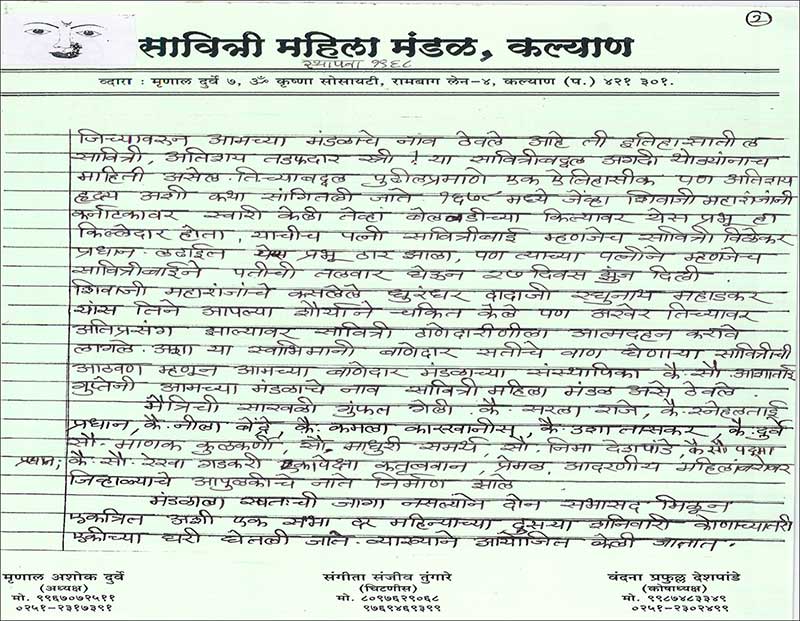 2
सावित्री महिला मंडळ, कल्याण
स्थापना १९६८
व्दारा : मृणाल दुर्वे ७, ॐ कृष्णा सोसायटी, रामबाग लेन-४, कल्याण (प.) ४२१ ३०१.
जिच्यावरून आमच्या मंडळाचे नाव ठेवले आहे ती इतिहासातील
सावित्री, अतिशय तडफदार स्त्री ! या सावित्रीबद्दल अगदी थोड्यांनाच
माहिती असेल. तिच्याबद्दल पुढीलप्रमाणे एक ऐतिहासीक पण अतिशय
हृद्य अशी कथा सांगितली जाते. १६७८ मध्ये जेव्हा शिवाजी महाराजांनी
कर्नाटकावर स्वारी केली तेव्हा बेलवडीच्या किल्यावर येस प्रभू हा
किल्लेदार होता, याचीच पत्नी सावित्रीबाई म्हणजेच सावित्री विठेकर
प्रधान. लढाईत येस प्रभू ठार झाला, पण त्याच्या पत्नीने म्हणजेच
सावित्रीबाईने पतीची तलवार घेऊन २७ दिवस झुंज दिली
शिवाजी महाराजांचे कसलेले धुरंधर दादाजी रघुनाथ महाडकर
यांस तिने आपल्या शौर्याने चकित केले पण अखेर तिच्यावर
अतिप्रसंग झाल्यावर सावित्री ठाणेदारीणीला आत्मदहन करावे
लागले. अशा या स्वाभिमानी बाणेदार सतीचे वाण घेणाऱ्या सावित्रीची
आठवण म्हणून आमच्या बाणेदार मंडळाच्या संस्थापिका कै. सौ. आगाताई
गुप्तेनी आमच्या मंडळाचे नाव सावित्री महिला मंडळ असे ठेवले.
मैत्रिची साखळी गुंफत गेली. कै. सरला राजे, कै. स्नेहलताई
प्रधान, कै. नीला बेंद्रे, कै. कमला कारखानीस, कै. उशा तासकर, कै. दुर्वे
सौ. माणक कुळकर्णी, सौ. माधुरी समर्थ, सौ. निमा देशपांडे, कै सौ पद्मा
प्रधान; कै. सौ. रेखा गडकरी एकापेक्षा कर्तृबवान, प्रेमळ, आदरणीय महिलांबरोबर
जिव्हाळ्याचे आपुलकीचे नाते निर्माण झाल
मंडळाला स्वतःची जागा नसल्याने दोन सभासद मिळून
एकत्रित अशी एक सभा दर महिन्याच्या दुसऱ्या शनिवारी कोणाच्यातरी
एकीच्या घरी घेतली जाते. व्याख्याने आयोजित केली जातात.
मृणाल अशोक दुर्वे
(अध्यक्ष)
मो. ९९६७०७२५११
०२५१-२३१७३९१
संगीता संजीव तुंगारे
(चिटणीस)
मो. ८०९७६२९०६८
९७६९४६९३९९
वंदना प्रफुल्ल देशपांडे
(कोषाध्यक्ष)
मो. ९९८७४८३३४९
०२५१-२३०२४९९